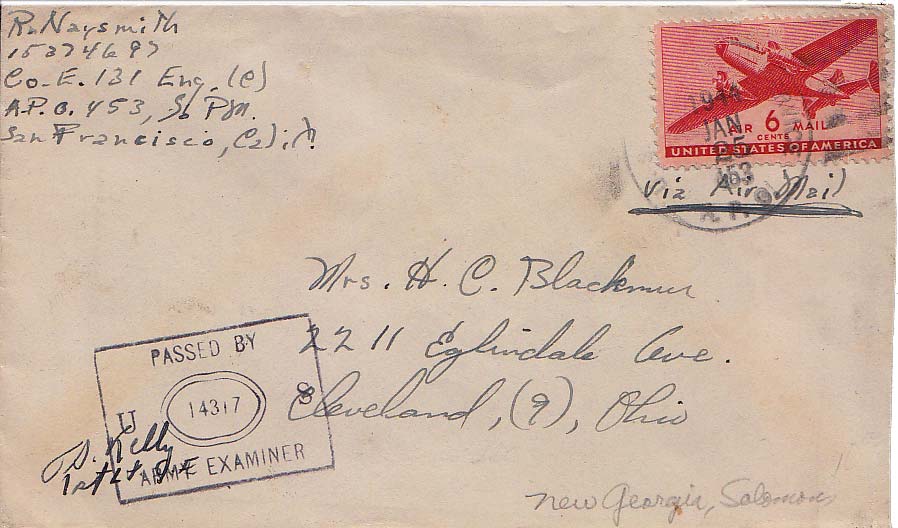 R. Naysmith
15374697
Co-E. 131 Eng. (C)
A.P.O. 453, % P.M.
San Francisco, Calif.
AIR 6 MAIL
CENTS
UNITED STATES OF AMERICA
JAN
25
453
A.P.O.
Via Air Mail
Mrs. H. C. Blackmur
2211 Eglindale Ave.
Cleveland, (9), Ohio
PASSED BY
U 14317 S
ARMY EXAMINER
Kelly
1st Lt
New Georgia, Solomons